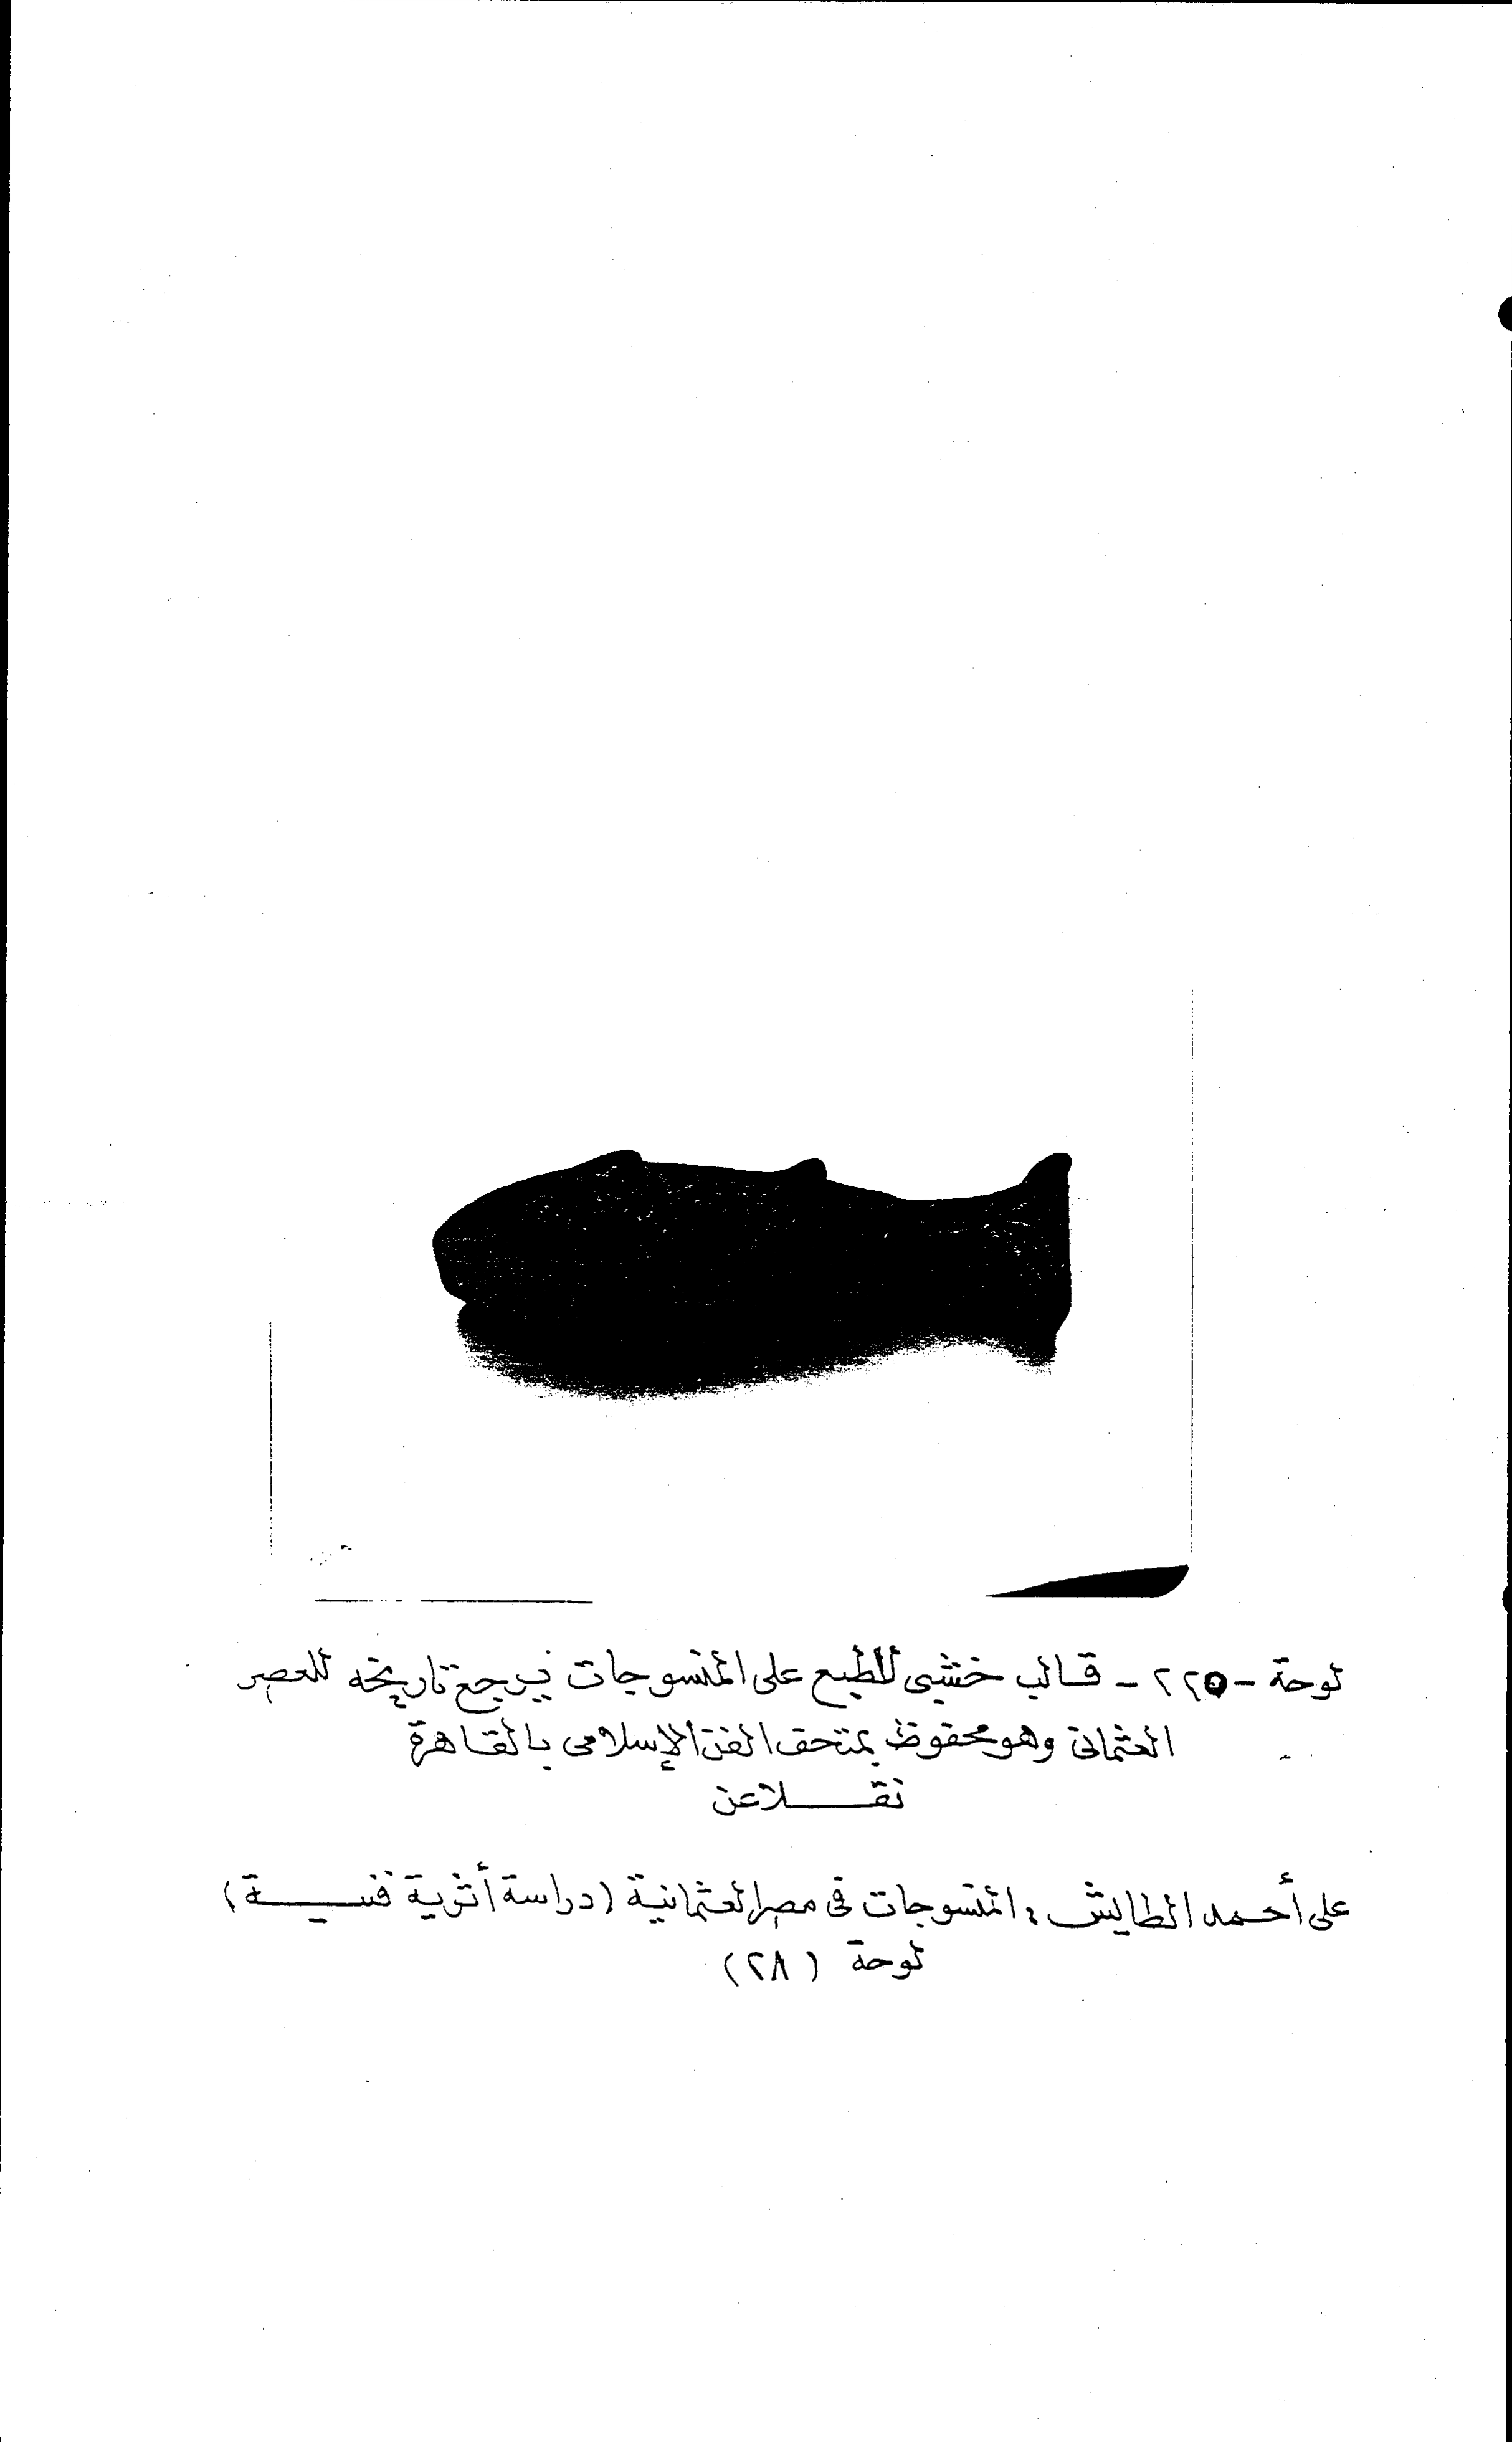 لوحة - ٢٢٥ - قالب خشبى للطبع على المنسوجات يرجع تاريخه للعصر
العثمانى وهو محفوظ بمتحف الفن الإسلامى بالقاهرة
نقلا عن
على أحمد الطايش : المنسوجات فى مصر العثمانية (دراسة أثرية فنية)
لوحة (٢٨)